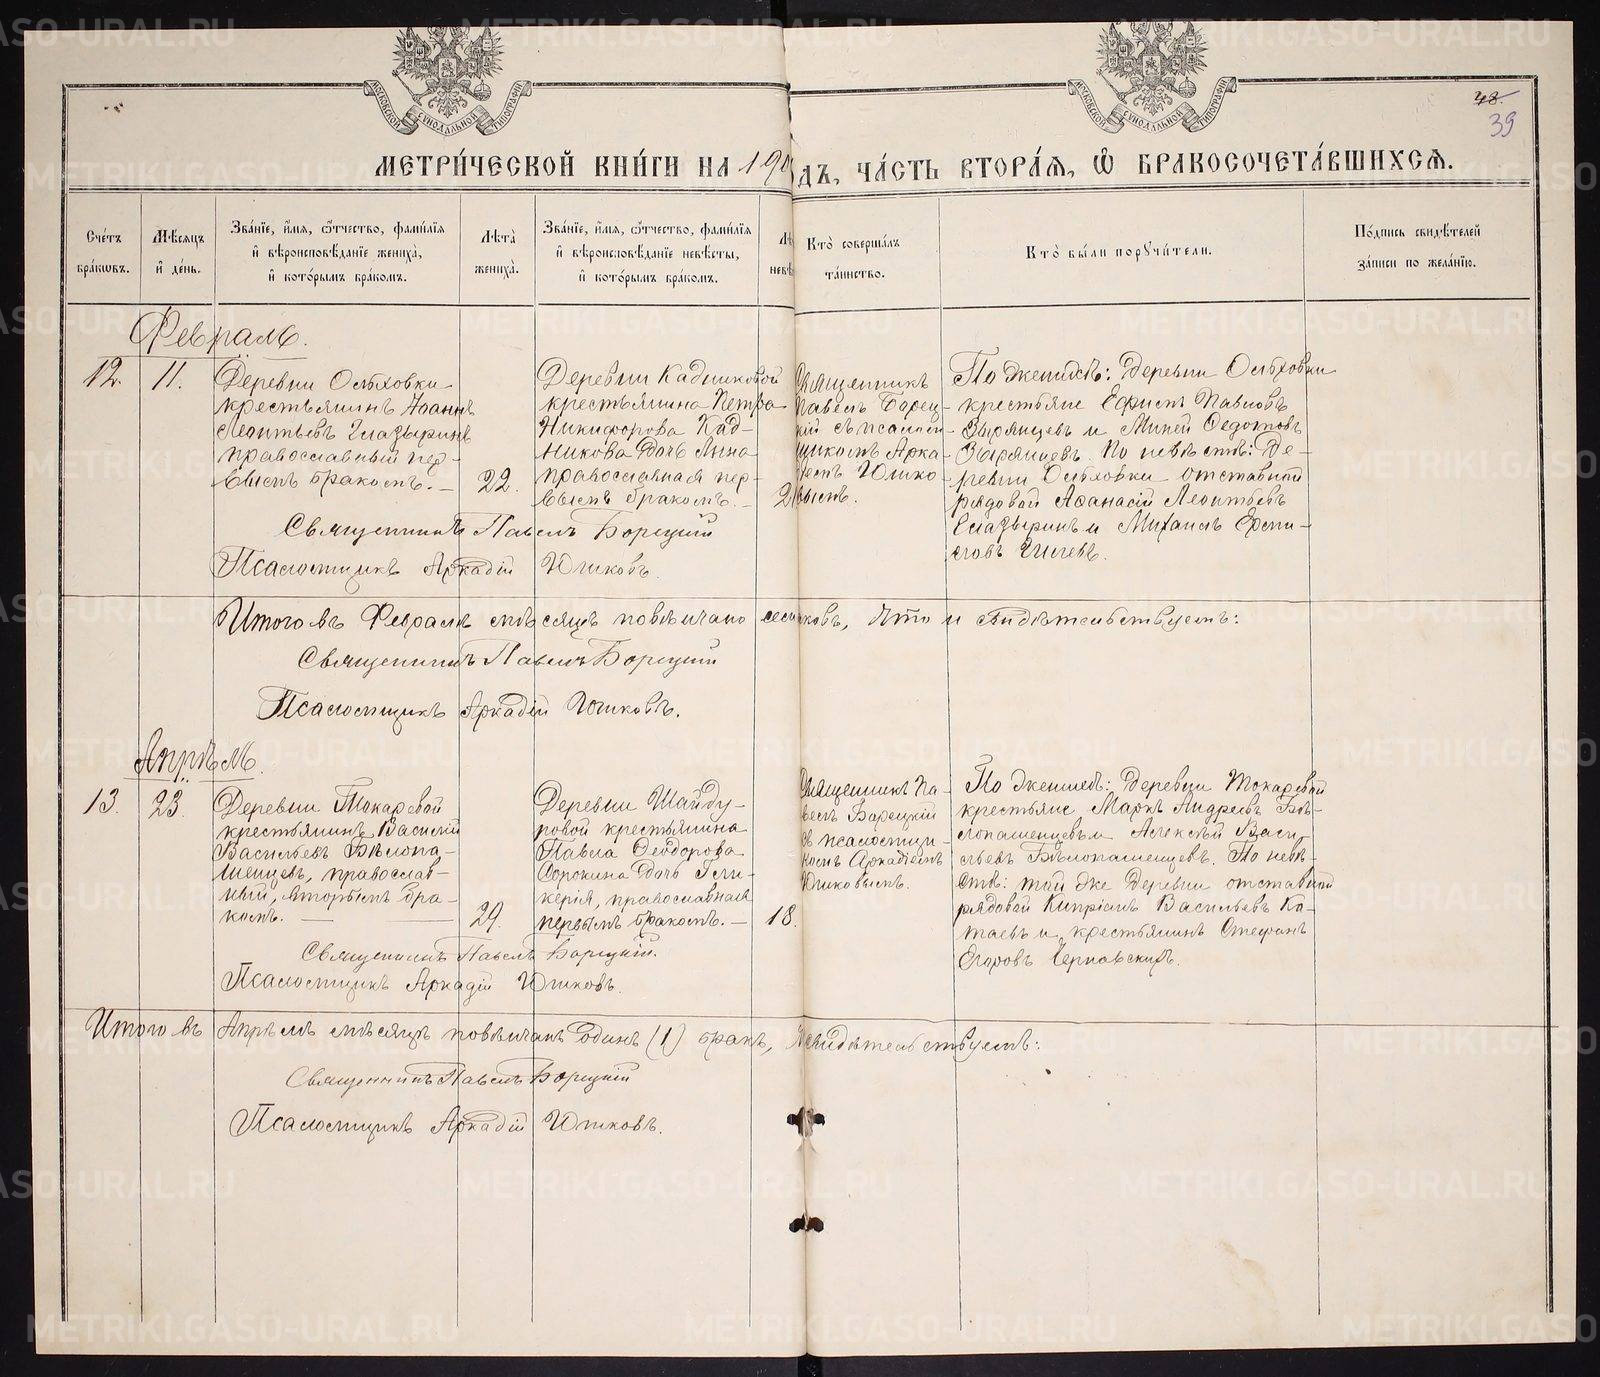 МОСКОВСКОЙ СУНОДАЛЬНОЙ ТИПОГРАФИИ
МОСКОВСКОЙ СУНОДАЛЬНОЙ ТИПОГРАФИИ
48.
39
МЕТРИ́ЧЕСКОЙ КНИ́ГИ НА 190
дъ, ЧА́СТЬ ВТОРА́Ѧ, Ѡ҆ БРАКОСОЧЕТА́ВШИХСѦ.
Сче́тъ бра́кѡвъ.
Мѣ́сѧцъ и҆ де́нь.
Зва́нїе, и҆́мѧ, ѻ҆́тчество, фамѝлїѧ и҆ вѣроисповѣ́данїе жениха̀, и҆ кото́рымъ бра́комъ.
Лѣта̀ жениха̀.
Зва́нїе, и҆́мѧ, ѻ҆́тчество, фамѝлїѧ и҆ вѣроисповѣ́данїе невѣ́сты, и҆ кото́рымъ бра́комъ.
Лѣ невѣ
Кто̀ соверша́лъ та́инство.
Кто̀ бы́ли порꙋчи́тели.
По́дпись свидѣ́телей за́писи по жела́нїю.
Февраль.
12.
11.
Деревни Ольховки
крестьянинъ Іоаннъ
Леонтьевъ Глазыринъ
православный пер-
вымъ бракомъ. —
22.
Деревни Кадниковой
крестьянина Петра
Никифорова Кад-
никова дочь Анна
православная пер-
вымъ бракомъ. —
2
Священникъ
Павелъ Борец-
кій съ псалом-
щикомъ Арка-
діемъ Юшко-
вымъ.
По женихѣ: деревни Ольховки
крестьяне Ефимъ Павловъ
Зырянцевъ и Миней Федотовъ
Зырянцевъ. По невѣстѣ: де-
ревни Ольховки отставной
рядовой Афанасій Леонтьевъ
Глазыринъ и Михаилъ
Священникъ Павелъ Борецкій
Псаломщикъ Аркадій Юшковъ.
Итого въ Февралѣ мѣсяцѣ повѣнчано ковъ, что и свидѣтельствуемъ:
Священникъ Павелъ Борецкій
Псаломщикъ Аркадій Юшковъ.
Апрѣль.
13.
23.
Деревни Токаревой
крестьянинъ Василій
Васильевъ Бѣлопа-
шенцевъ, православ-
ный, вторымъ бра-
комъ. —
29.
Деревни Шайду-
ровой крестьянина
Павла Ѳеодорова
Сорокина дочь Гли-
керія, православная
первымъ бракомъ. —
18.
Священникъ Па-
велъ Борецкій
съ псаломщи-
комъ Аркадіемъ
Юшковымъ.
По женихѣ: деревни Токаревой
крестьяне Маркъ Андреевъ Бѣ-
лопашенцевъ и Алексѣй Васи-
льевъ Бѣлопашенцевъ. По невѣ-
стѣ: той же деревни отставной
рядовой Кипріанъ Васильевъ Ка-
таевъ и крестьянинъ Стефанъ
Егоровъ Черновскихъ.
Священникъ Павелъ Борецкій.
Псаломщикъ Аркадій Юшковъ.
Итого въ Апрѣлѣ мѣсяцѣ повѣнчанъ одинъ (1) бракъ, свидѣтельствуемъ:
Священникъ Павелъ Борецкій
Псаломщикъ Аркадій Юшковъ.
METRIKI.GASO-URAL.RU